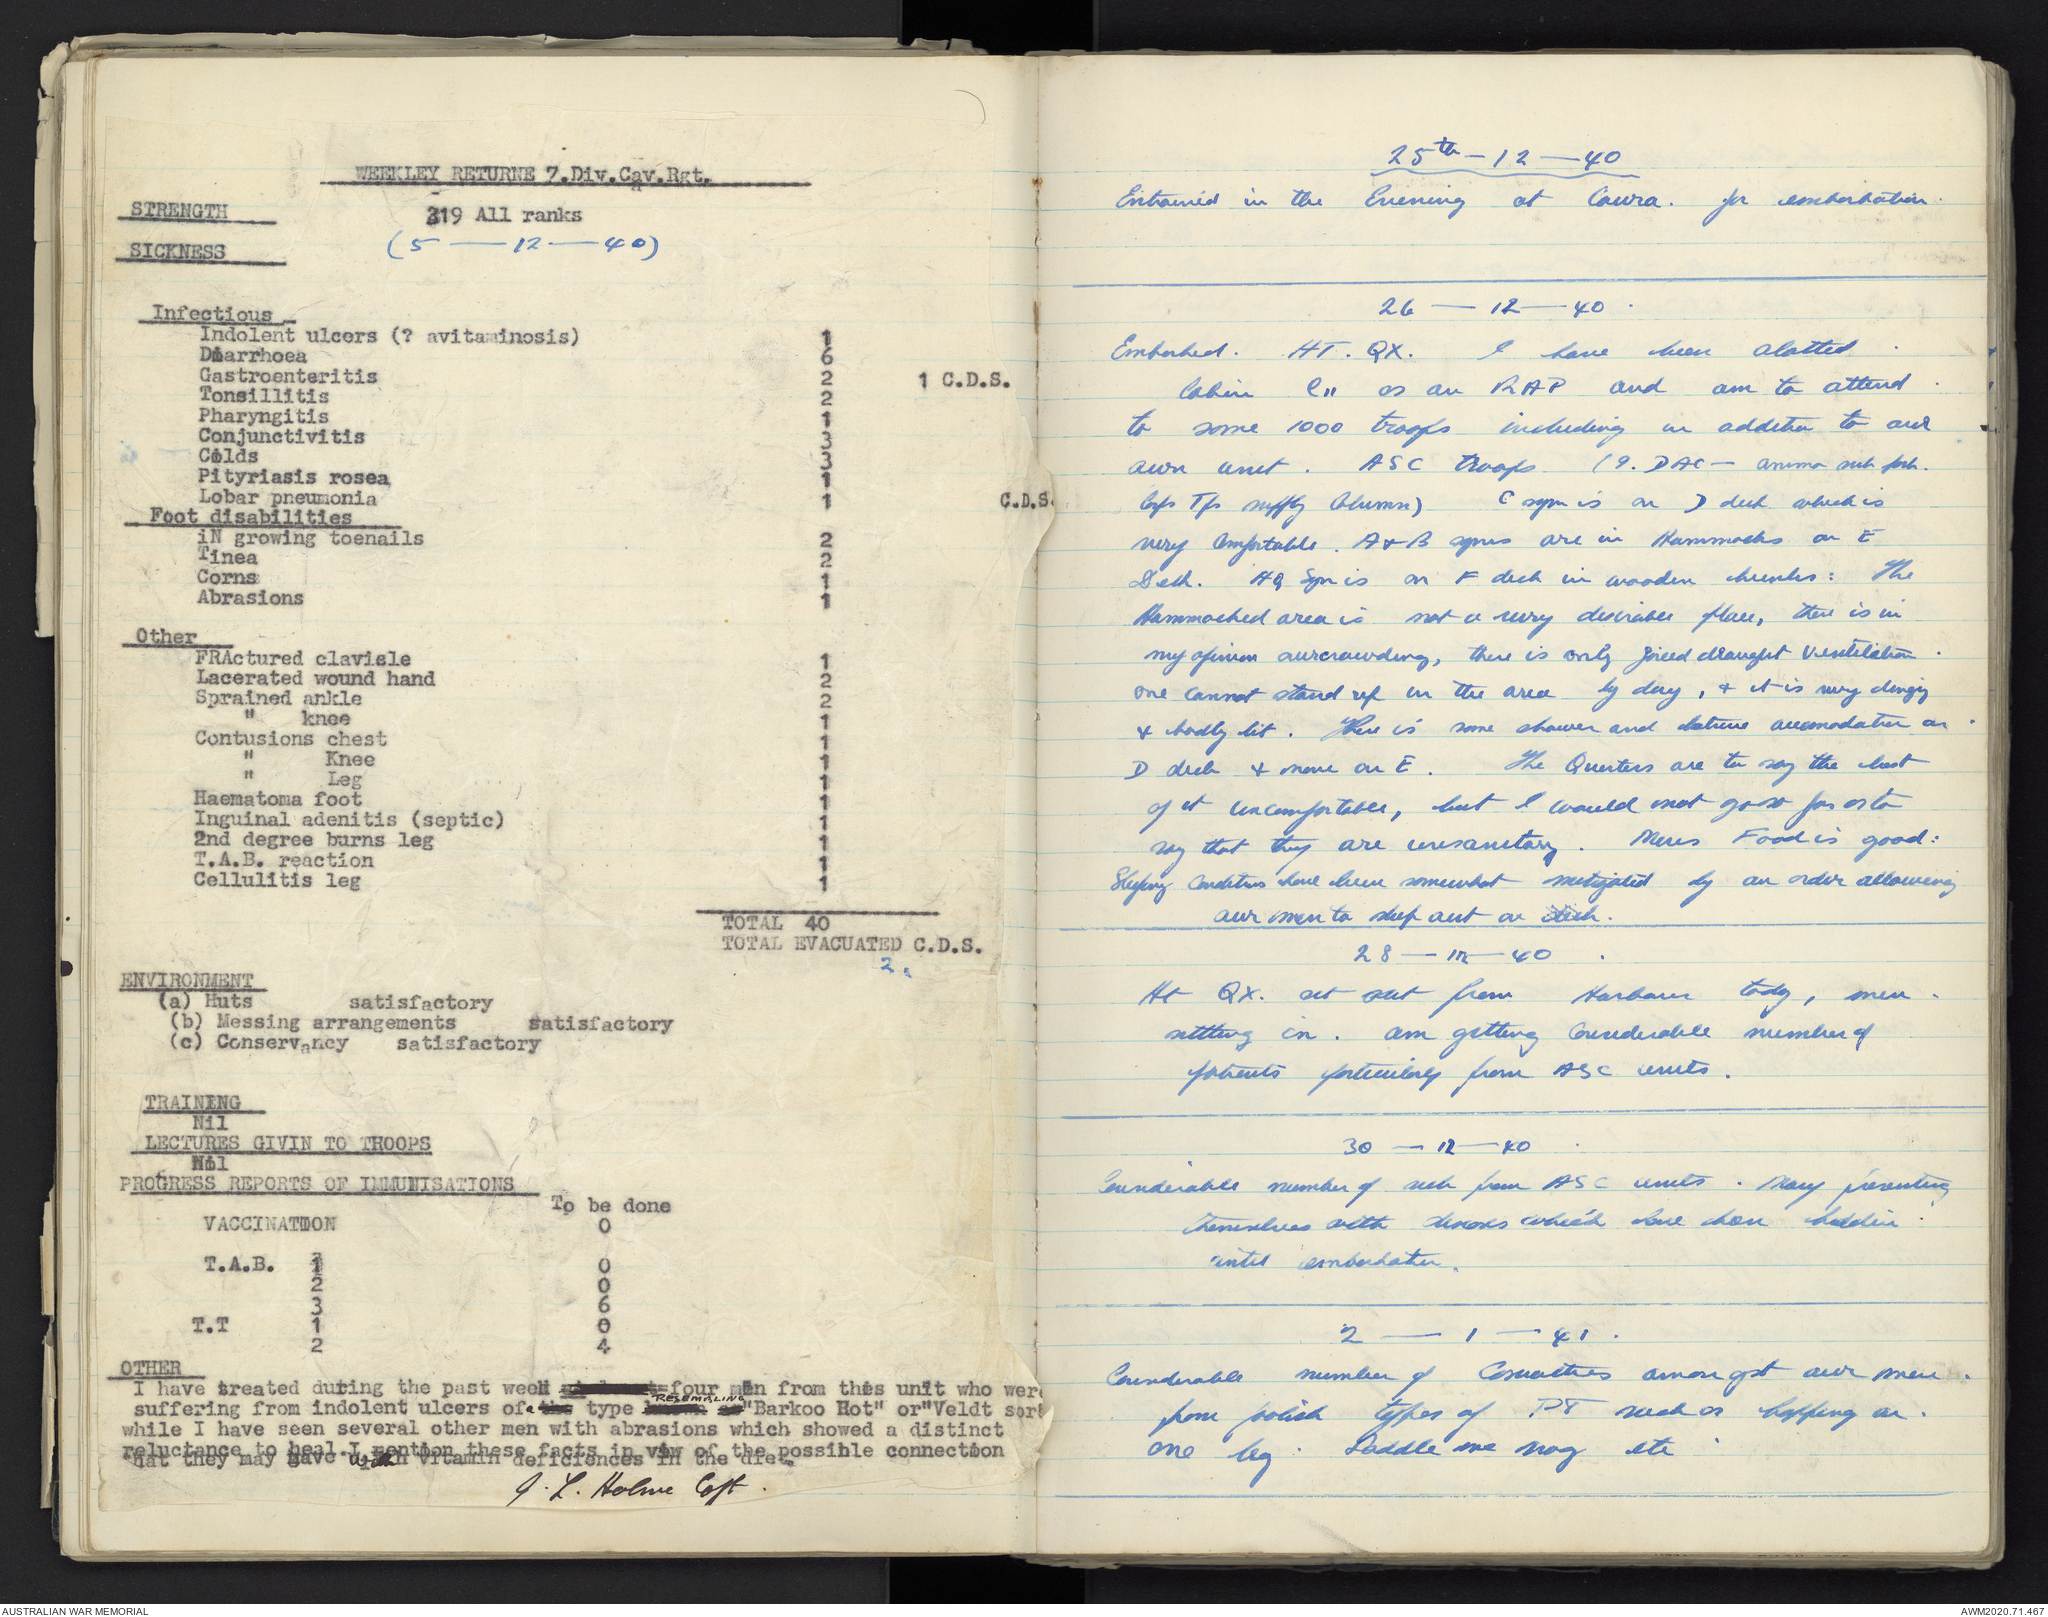 WEEKLEY RETURNE 7.Div.Cav.Rgt.
STRENGTH 319 All ranks
(5 — 12 — 40)
SICKNESS
Infectious
Indolent ulcers (? avitaminosis) 1
Diarrhoea 6
Gastroenteritis 2 1 C.D.S.
Tonsillitis 2
Pharyngitis 1
Conjunctivitis 3
Colds 3
Pityriasis rosea 1
Lobar pneumonia 1 C.D.S.
Foot disabilities
iN growing toenails 2
Tinea 2
Corns 1
Abrasions 1
Other
FRActured clavisle 1
Lacerated wound hand 2
Sprained ankle 2
" knee 1
Contusions chest 1
" Knee 1
" Leg 1
Haematoma foot 1
Inguinal adenitis (septic) 1
2nd degree burns leg 1
T.A.B. reaction 1
Cellulitis leg 1
TOTAL 40
TOTAL EVACUATED C.D.S.
2.
ENVIRONMENT
(a) Huts satisfactory
(b) Messing arrangements satisfactory
(c) Conservancy satisfactory
TRAINING
Nil
LECTURES GIVIN TO TROOPS
Nil
PROGRESS REPORTS OF IMMUNISATIONS
To be done
VACCINATION 0
T.A.B. 1 0
2 0
3 6
T.T 1 0
2 4
OTHER
I have treated during the past week four men from this unit who were
suffering from indolent ulcers of a type RESEMBLING "Barkoo Rot" or "Veldt sore
while I have seen several other men with abrasions which showed a distinct
reluctance to heal. I mention these facts in view of the possible connection
that they may have with vitamin deficiences in the diet.
J. L. Holme Capt.
25th — 12 — 40
Entrained in the Evening at Cowra. for embarkation.
26 — 12 — 40.
Embarked. HT. QX. I have been alotted
Cabin C11 as an RAP and am to attend
to some 1000 troops including in addition to our
own unit. ASC troops (9. DAC — ammo sub park.
Corps Tps supply Column) C sqn is on D deck which is
very comfortable. A & B sqns are in Hammocks on E
Deck. HQ Sqn is on F deck in wooden bunks: The
Hammocked area is not a very desirable place, there is in
my opinion overcrowding, there is only forced draught ventilation.
one cannot stand up in the area by day, & it is very dingy
& badly lit. There is some shower and latrine accomodation on
D deck & none on E. The Quarters are to say the best
of it uncomfortable, but I would not go so far as to
say that they are unsanitary. Mens Food is good:
Sleeping Conditions have been somewhat mitigated by an order allowing
our men to sleep out on deck.
28 — 12 — 40.
Ht QX. set out from Harbour today, men
settling in. am getting Considerable number of
patients particularly from ASC units.
30 — 12 — 40.
Considerable number of sick from ASC units. Many presenting
themselves with diseases which have been hidden
until embarkation.
2 — 1 — 41.
Considerable number of Casualties amongst our men.
from foolish types of PT such as hopping on.
one leg. Saddle me nag etc.
AUSTRALIAN WAR MEMORIAL
AWM2020.71.467